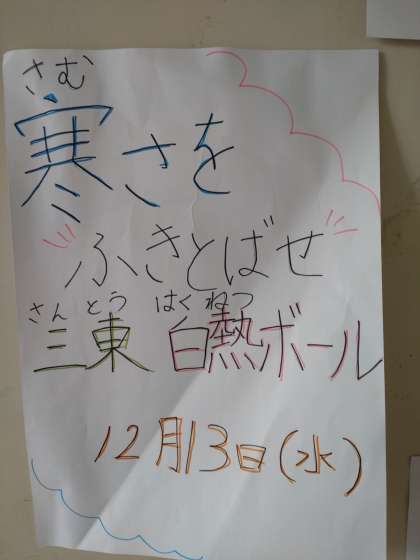 さむ
寒さを
ふきとばせ
さん とう はく ねつ
三東 白熱ボール
12月13日(水)